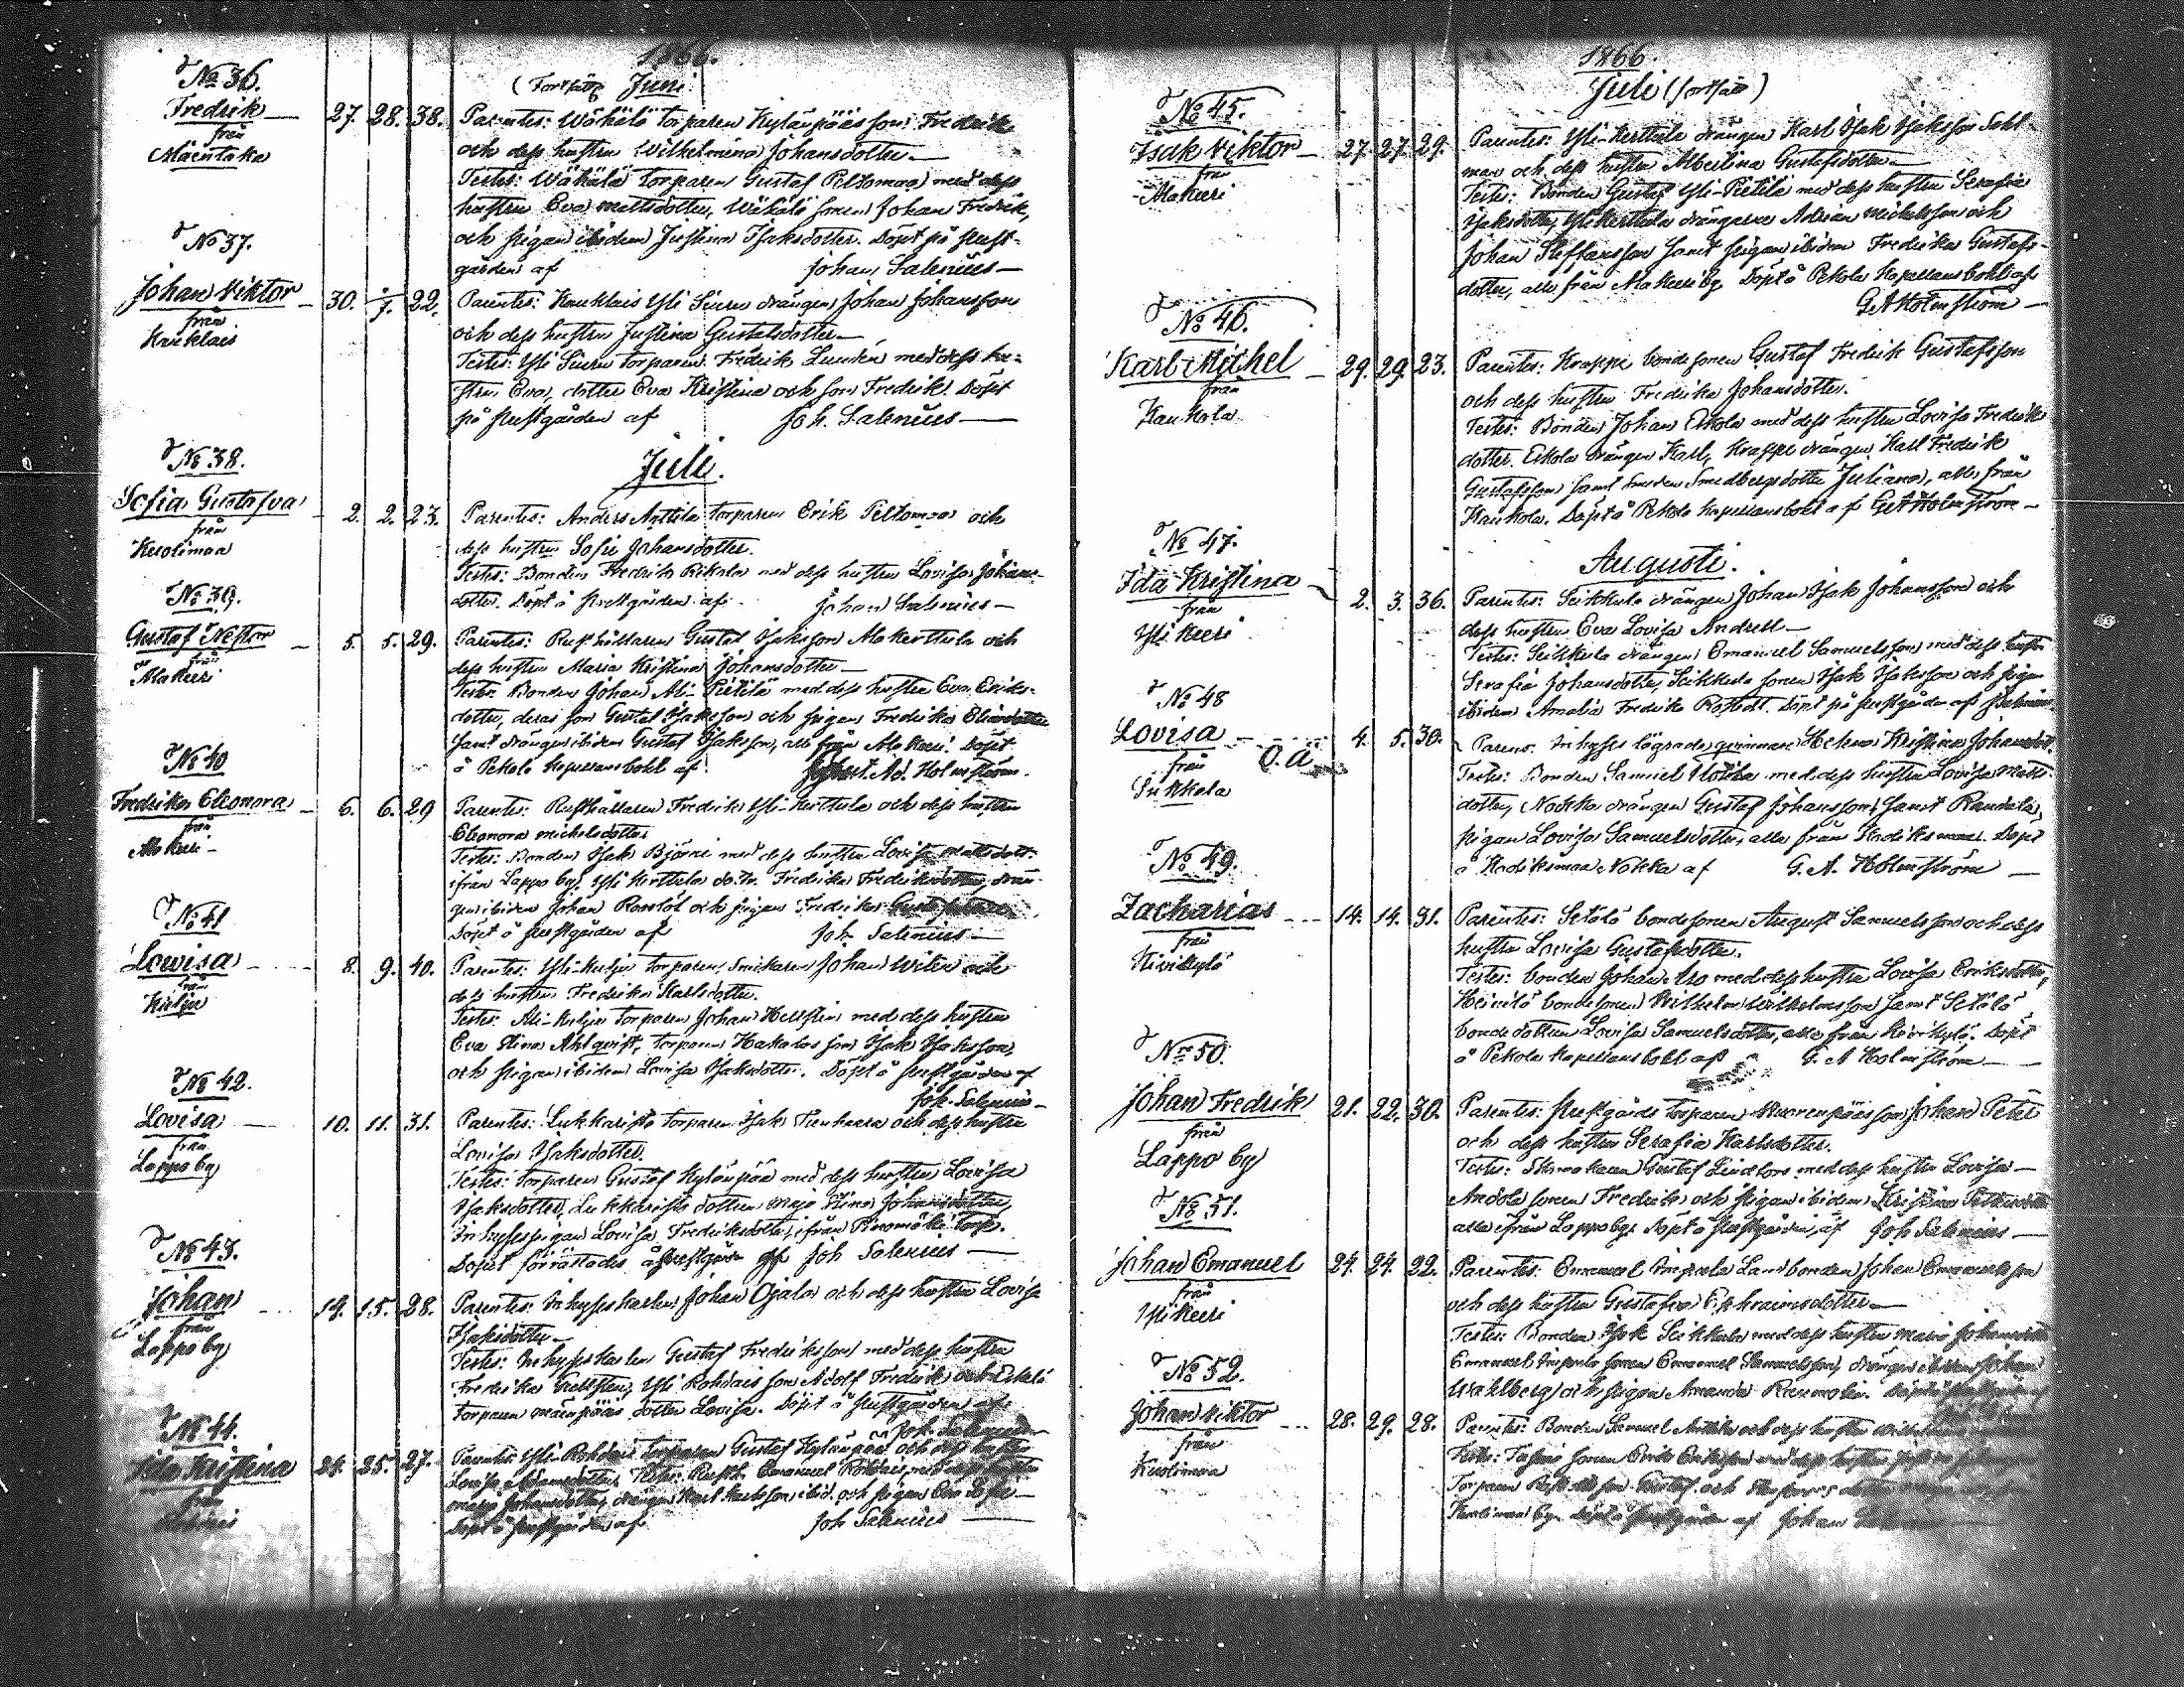 1866.
(Fortsätt) Juni.
No 36.
Fredrik 27. 28. 38. Parentes: Wähälä torparen Kylänpääs son Fredrik
från
Mäentaka
och dess hustru Wilhelmina Johansdotter
Testes: Wähälä torparen Gustaf Peltomaa med dess
hustru Eva Mattsdotter, Wähälä sonen Johan Fredrik,
och pigan ibidem Justina Isaksdotter. Döpt på prest-
gården af Johan Salenius
No 37.
Johan Viktor 30. 1. 22. Parentes: Kauklais Yli Siuru drängen Johan Johansson
från
Kauklais
och dess hustru Justina Gustafsdotter
Testes: Yli Siuru torparen Fredrik Lundén med dess hu-
stru Eva, dotter Eva Kristina och son Fredrik. Döpt
på prestgården af Joh. Salenius
Juli.
No 38.
Sofia Gustafva 2. 2. 23. Parentes: Anders Anttila torparen Erik Peltomaa och
från
Kuolimaa
dess hustru Sofie Johansdotter.
Testes: Bonden Fredrik Rekola med dess hustru Lovisa Johans-
dotter. Döpt å prestgården af Johan Salenius
No 39.
Gustaf Nestor 5. 5. 29. Parentes: Rusthållaren Gustaf Isaksson Alakerttula och
från
Alakeeri
dess hustru Maria Kristina Johansdotter
Testes: Bonden Johan Ali-Pietilä med dess hustru Eva Eriks-
dotter, deras son Gustaf Isaksson och pigan Fredrika
samt drängen ibidem Gustaf Isaksson, alla från Alakeeri. Döpt
å Pekola kapellansbohl af Gust. Ad. Holmström.
No 40
Fredrika Eleonora 6. 6. 29 Parentes: Rusthållaren Fredrik Yli-Kerttula och dess hustru
från
Alakeeri
Eleonora Michelsdotter
Testes: Bonden Isak Björni med dess hustru Lovisa Mattsdott.
ifrån Lappo by, Yli Kerttula dotr. Fredrika Fredriksdotter, drän-
gen ibidem Johan Rooslöf och pigan Fredrika
Döpt å prestgården af Joh. Salenius
No 41
Lowisa 8. 9. 40. Parentes: Yli-Kulju torparen, Snickaren Johan Wilén och
från
Kulju
dess hustru Fredrika Karlsdotter.
Testes: Ali-Kulju torparen Johan Hellstén med dess hustru
Eva Stina Ahlqvist, torparen Hakalas son Isak Isaksson,
och pigan ibidem Lovisa Isaksdotter. Döpt å prestgården af
Joh. Salenius
No 42.
Lovisa 10. 11. 31. Parentes: Lukkaristo torparen Isak Tienhaara och dess hustru
från
Lappo by
Lovisa Isaksdotter.
Testes: torparen Gustaf Kylänpää med dess hustru Lovisa
Isaksdotter, Lukkaristo dottern Maja Stina Johansdotter,
Inhysespigan Lovisa Fredriksdotter, ifrån torp.
Dopet förrättades å prestgården af Joh Salenius
No 43.
Johan 14. 15. 28. Parentes: Inhyseskarlen Johan Ojala och dess hustru Lovisa
från
Lappo by
Isaksdotter
Testes: Inhyseskarlen Gustaf Fredriksson med dess hustru
Fredrika Yli Rohdais son Adolf Fredrik och Eskola
torparen Mäenpääs dotter Lovisa. Döpt å prestgården af
Joh. Salenius
No 44.
Ida Kristina 24. 25. 27. Parentes: Yli-Rohdais torparen Gustaf Kylänpää och dess hustru
från
Lovisa Adamsdotter, Testes: Rusth. Emanuel Rohdais med
Maja Johansdotter, drängen Karl Karlsson ibid. och pigan Eva
Döpt å prestgården af Joh Salenius
1866.
Juli (fortsätt)
No 45.
Isak Viktor 27. 27. 29. Parentes: Yli-Kerttula drängen Karl Isak Isaksson Sahl-
från
Alakeeri
man och dess hustru Albertina Gustafsdotter
Testes: Bonden Gustaf Yli-Pietilä med dess hustru Serafia
Isaksdotter, Yli Kerttula drängarne Adrian Michelsson och
Johan Steffansson samt pigan ibidem Fredrika Gustafs-
dotter, alla från Alakeeri by. Döpt å Pekola kapellansbohl af
G A Holmström
No 46.
Karl Michel 29. 29. 23. Parentes: Krappi bondesonen Gustaf Fredrik Gustafsson
från
Kaukola
och dess hustru Fredrika Johansdotter.
Testes: Bonden Johan Eskola med dess hustru Lovisa Fredriks
dotter. Eskola drängen Karl, Krappi drängen Karl Fredrik
Gustafsson samt smeden Smedbergs dotter Juliana, alla från
Kaukola. Döpt å Pekola kapellansbohl af G A Holmström
Augusti.
No 47.
Ida Kristina 2. 3. 36. Parentes: Seikkula drängen Johan Isak Johansson och
från
Ylikeeri
dess hustru Eva Lovisa Andsell
Testes: Seikkula drängen Emanuel Samuelsson med dess hustru
Serafia Johansdotter, Seikkula sonen Isak Isaksson och pigan
ibidem Amalia Fredrika Döpt på prestgården af
No 48
Lovisa 4. 5. 30. Parens: Inhyses lägrade qvinnan Helena Kristina Johansdot.
från O. Ä
Sukkola
Testes: Bonden Samuel Nokka med dess hustru Lovisa Matts-
dotter, Nokka drängen Gustaf Johansson samt Raudala
pigan Lovisa Samuelsdotter, alla från Kadiksmaa. Döpt
å Kadiksmaa Nokka af G. A. Holmström
No 49.
Zacharias 14. 14. 31. Parentes: Setälä bondesonen August Samuelsson och dess
från
Kivikylä
hustru Lovisa Gustafsdotter.
Testes: bonden Johan Uro med dess hustru Lovisa Eriksdotter,
Heinilä bondesonen Wilhelm Wilhelmsson samt Setälä
bondedottern Lovisa Samuelsdotter, alla från Kivikylä. Döpt
å Pekola kapellansbohl af G. A Holmström
No 50.
Johan Fredrik 21. 22. 30. Parentes: Prestgårds torparen Nuorenpääs son Johan Petri
från
Lappo by
och dess hustru Serafia Karlsdotter.
Testes: Skomakaren Gustaf Lindfors med dess hustru Lovisa
Andola sonen Fredrik och pigan ibidem Kristina
alla ifrån Lappo by. Döpt å prestgården, af Joh Salenius
No 51.
Johan Emanuel 24. 24. 22. Parentes: Emanuel Impola Landbonden Johan Emanuelsson
från
Ylikeeri
och dess hustru Gustafva Ephraimsdotter
Testes: Bonden Isak Seikkula med dess hustru Maria Johansdotter
Emanuel Impola sonen Emanuel Samuelsson, drängen ibidem Johan
Wahlberg och pigan Amanda
No 52.
Johan Viktor 28. 29. 28. Parentes: Bonden Samuel Anttila och dess hustru
från
Kuolimaa
Testes: sonen Erik Eriksson med dess hustru
Torparen son Gustaf och dotter
Kuolimaa by. Döpt å prestgården af Johan